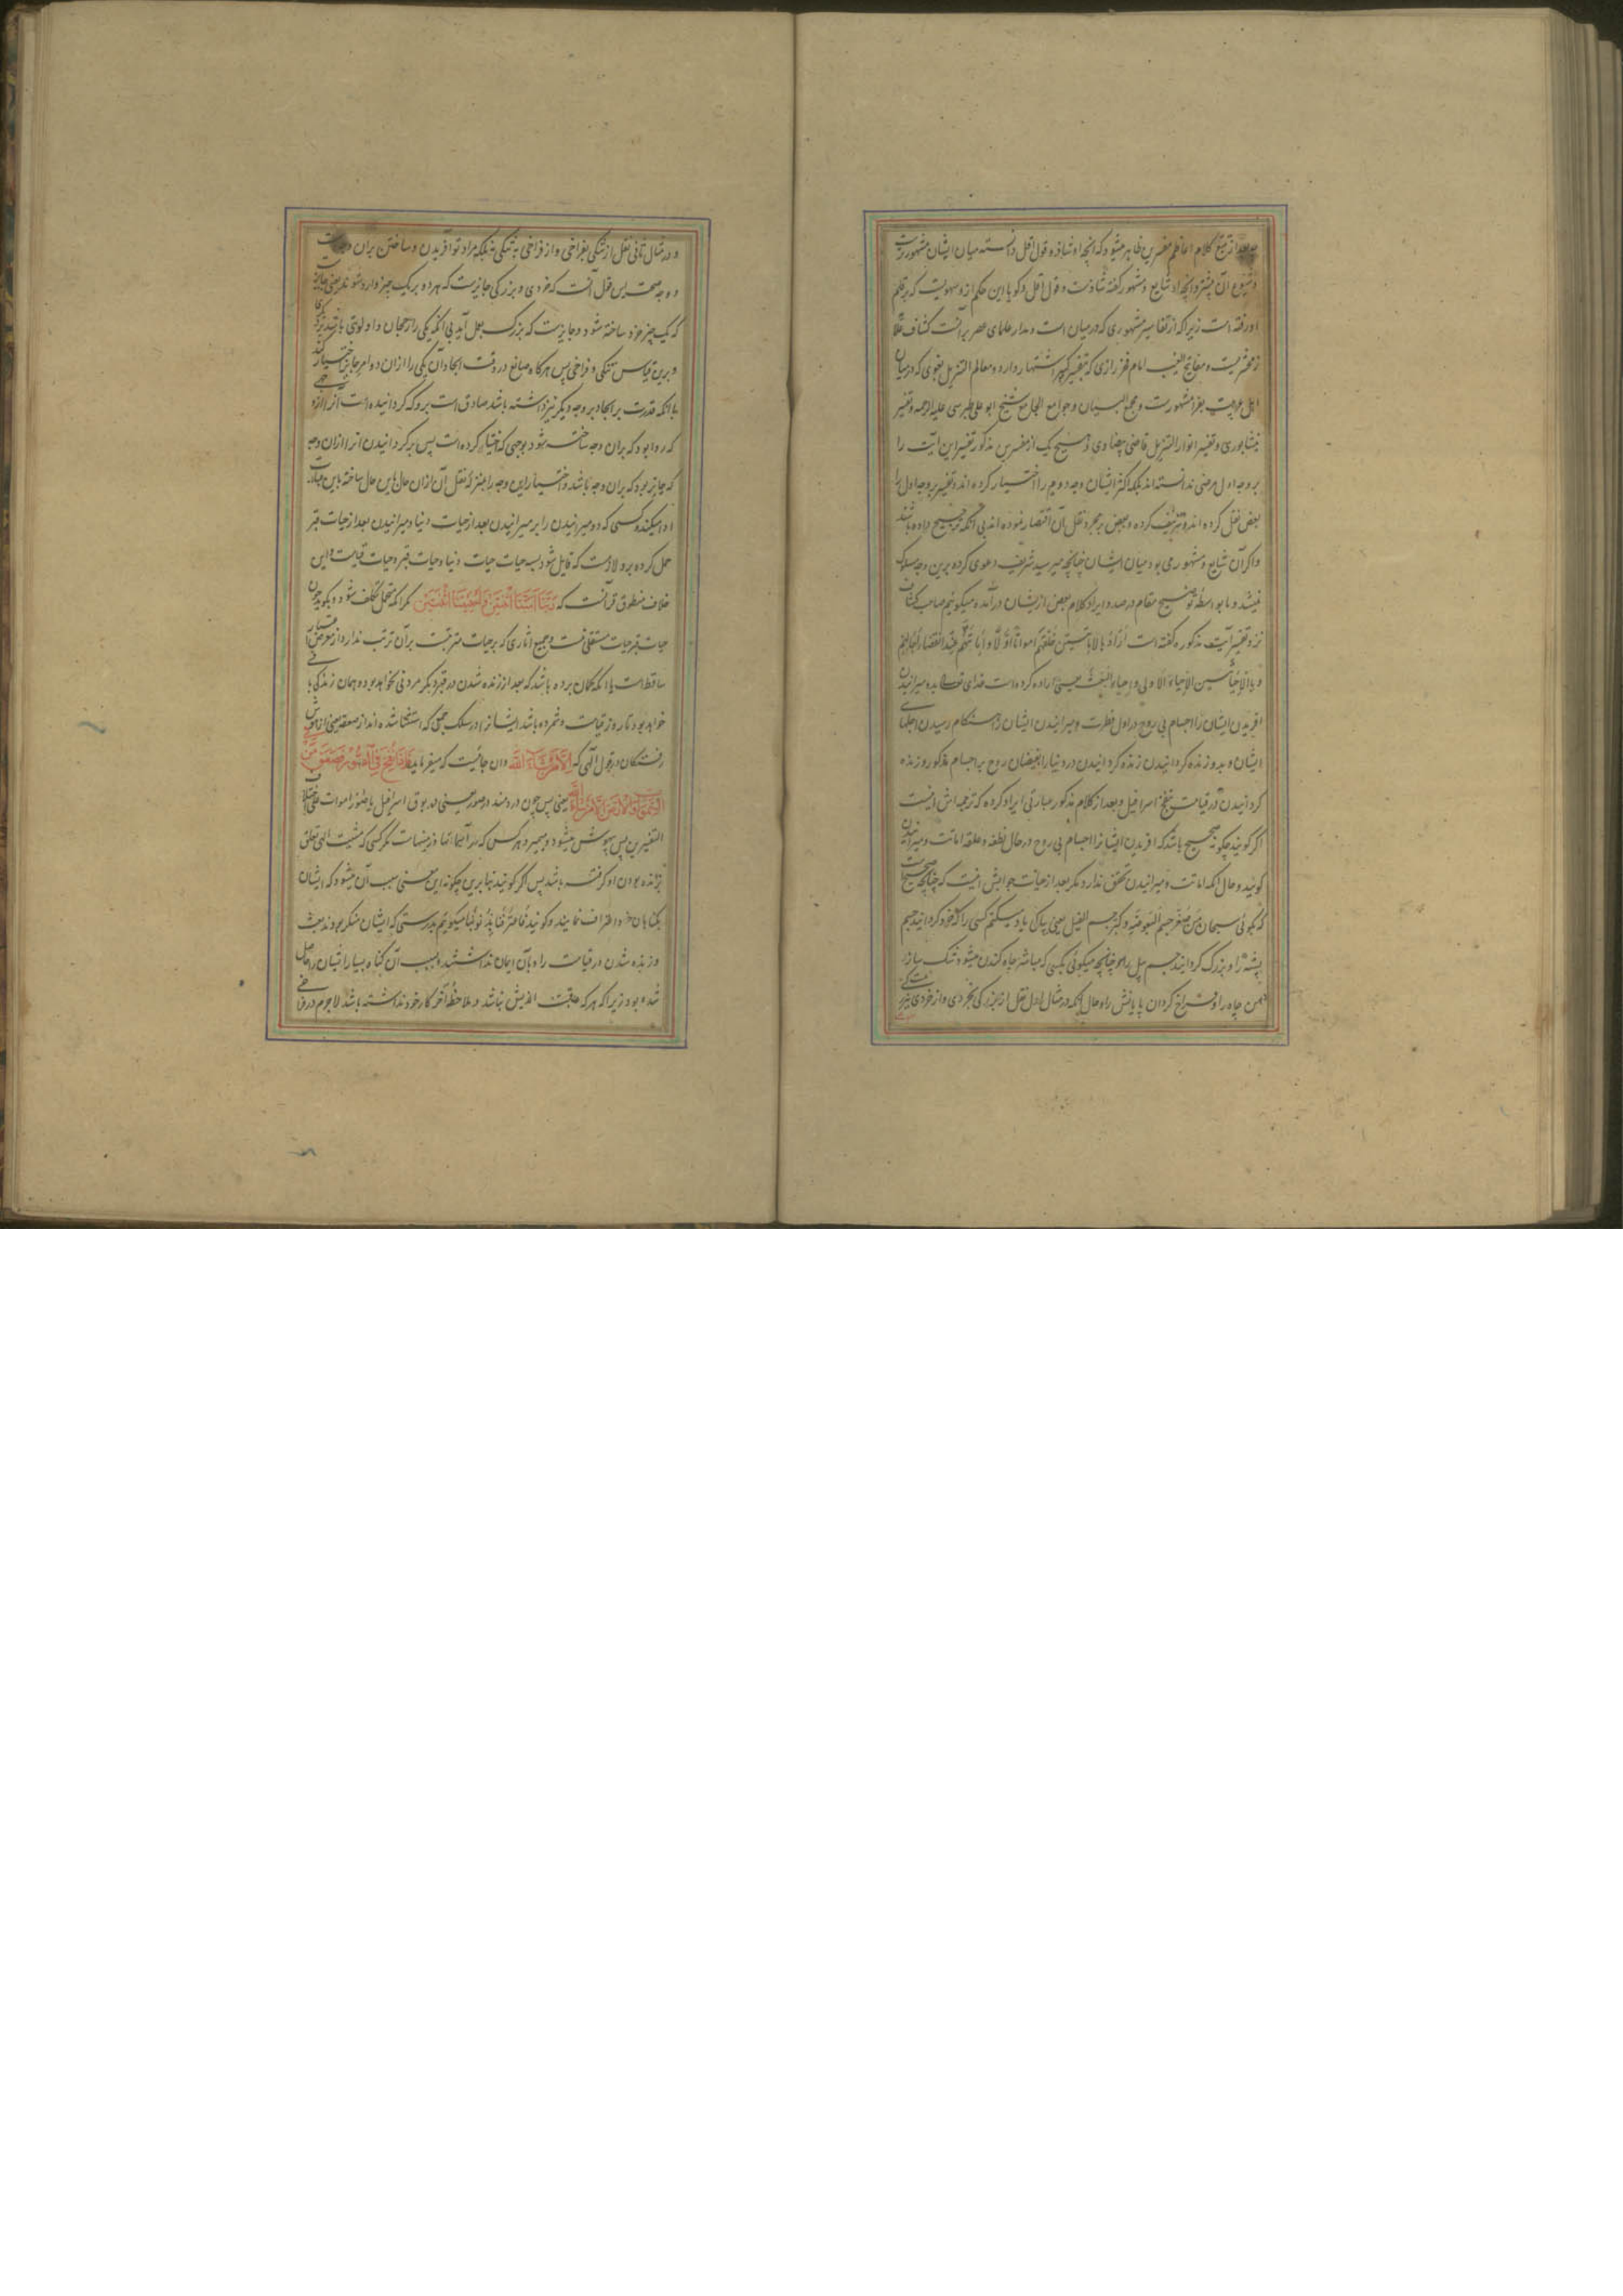 بعد از تتبع کلام اعاظم مفسرین ظاهر میشود که آنچه او شاذ و قول اقل دانسته میان ایشان مشهورست
و شیوع آن بیشتر و آنچه او شایع و مشهور گفته شاذست و قول اقل و گویا این حکم از و سهویست که بر قلم
او رفته است زیرا که از تفاسیر مشهوری که در میان است و مدار علمای عصر بر آنست کشاف علامه
زمخشریست و مفاتیح الغیب امام فخر رازی که بتفسیر کبیر اشتهار دارد و معالم التنزیل بغوی که در میان
اهل مشهورست و مجمع البیان و جوامع الجامع شیخ ابو علی طبرسی علیه الرحمه و تفسیر
نیشابوری و تفسیر انوار التنزیل قاضی بیضاوی و هیچ یک از مفسرین مذکور تفسیر این آیت را
بر وجه اول مرضی ندانسته‌اند بلکه اکثر ایشان وجه دویم را اختیار کرده‌اند و تفسیر بر وجه اول را
بعض نقل کرده‌اند و تزییف کرده و بعض بر مجرد نقل آن اقتصار نموده‌اند بی آنکه ترجیح داده باشند
و اگر آن شایع و مشهور می بود میان ایشان چنانچه میر سید شریف دعوی کرده برین وجه سلوک
نمیشد و ما بواسطه توضیح مقام در صدد ایراد کلام بعض از ایشان در آمده میگوییم صاحب کشاف
نزد تفسیر آیت مذکوره گفته است أراد بالاماتتین خلقهم أمواتا أولا و إماتتهم عند انقضاء آجالهم
و بالإحیائین الإحیاءة الاولی و إحیاءة البعث یعنی اراده کرده است خدای تعالی بدو میرانیدن
آفریدن ایشان را اجسام بی روح در اول فطرت و میرانیدن ایشان را هنگام رسیدن اجلهای
ایشان و بدو زنده گردانیدن زنده گردانیدن در دنیا را بفیضان روح بر اجسام مذکور و زنده
گردانیدن در قیامت بنفخ اسرافیل و بعد از کلام مذکور عبارتی ایراد کرده که ترجمه‌اش اینست
اگر گویند چگونه صحیح باشد که آفریدن ایشانرا اجسام بی روح در حال نطفه و علقه اماتت و میرانیدن
گویند و حال آنکه اماتت و میرانیدن تحقق ندارد مگر بعد از حیات جوابش اینست که چنانچه صحیح است
که بگوئی سبحان من صغر جسم البعوضه و کبر جسم الفیل یعنی پاک یاد میکنم کسی را که خرد گردانید جسم
پشه را و بزرگ گردانید جسم پیل را و چنانچه میگوئی بکسی که مباشر چاه کندن میشود تنگ ساز
دهن چاه را و فراخ گردان پایانش را و حال آنکه در مثال اول نقل از بزرگی بخردی و از خردی
و در مثال ثانی نقل از تنگی بفراخی و از فراخی به تنگی نه بلکه مراد تو آفریدن و ساختن بران وجهست
و وجه صحت این قول آنست که خردی و بزرگی جایزست که هر دو بر یک چیز وارد شود یعنی جایزست
که یک چیز خرد ساخته شود و جایزست که بزرگ بعمل آید بی آنکه یکی را رجحان و اولویتی باشد بر دیگری
و برین قیاس تنگی و فراخی پس هرگاه صانع در وقت ایجاد آن یکی را از ان دو امر جایز اختیار کند
با آنکه قدرت بر ایجاد بر وجه دیگر نیز داشته باشد صادق است برو که گردانیده است آنرا از وجهی
که روا بود که بران وجه ساخته شود بوجهی که اختیار کرده است پس برگردانیدن آنرا از ان وجه
که جایز بود که بران وجه باشد و اختیار این وجه را بمنزله نقل آن از ان حال باین حال ساخته باین عبارت
ادا میکند و کسی که دو میرانیدن را بر میرانیدن بعد از حیات دنیا و میرانیدن بعد از حیات قبر
حمل کرده برو لازمست که قایل شود بسه حیات حیات دنیا و حیات قبر و حیات قیامت و این
خلاف منطوق قرآنست که ربنا أمتنا اثنتین و أحییتنا اثنتین مگر آنکه متحمل تکلف شود و بگوید چون
حیات قبر حیات مستقلی نیست و جمیع آثاری که بر حیات مترتبست بر آن ترتب ندارد از معرض اعتبار
ساقط است یا آنکه گمان برده باشد که بعد از زنده شدن در قبر دیگر مردنی نخواهد بود و همان زندگی باقی
خواهد بود تا روز قیامت و شمرده باشد ایشانرا در سلک جمعی که استثنا شده‌اند از صعقه یعنی از هوش
رفتگان در قول الهی که إلا من شاء الله و ان جائیست که میفرماید فإذا نفخ فی الصور فصعق من فی
السموات و الأرض إلا من شاء الله یعنی پس چون در دمند در صور یعنی در بوق اسرافیل یا صور اموات علی اختلاف
التفسیرین پس بیهوش میشود و بمیرد هر کس که در آسمانها و زمینهاست مگر کسی که مشیت الهی تعلق
بزنده بودن او گرفته باشد پس اگر گویند بنا برین چگونه این معنی سبب آن میشود که ایشان
بگناهان خود اعتراف نمایند و گویند فاعترفنا بذنوبنا میگوییم بدرستی که ایشان منکر بودند بعث
و زنده شدن در قیامت را و بآن ایمان نداشتند و بسبب آن گناه بسیار ایشان را حاصل
شده بود زیرا که هر که عاقبت اندیش نباشد و ملاحظه آخر کار خود نداشته باشد لاجرم در